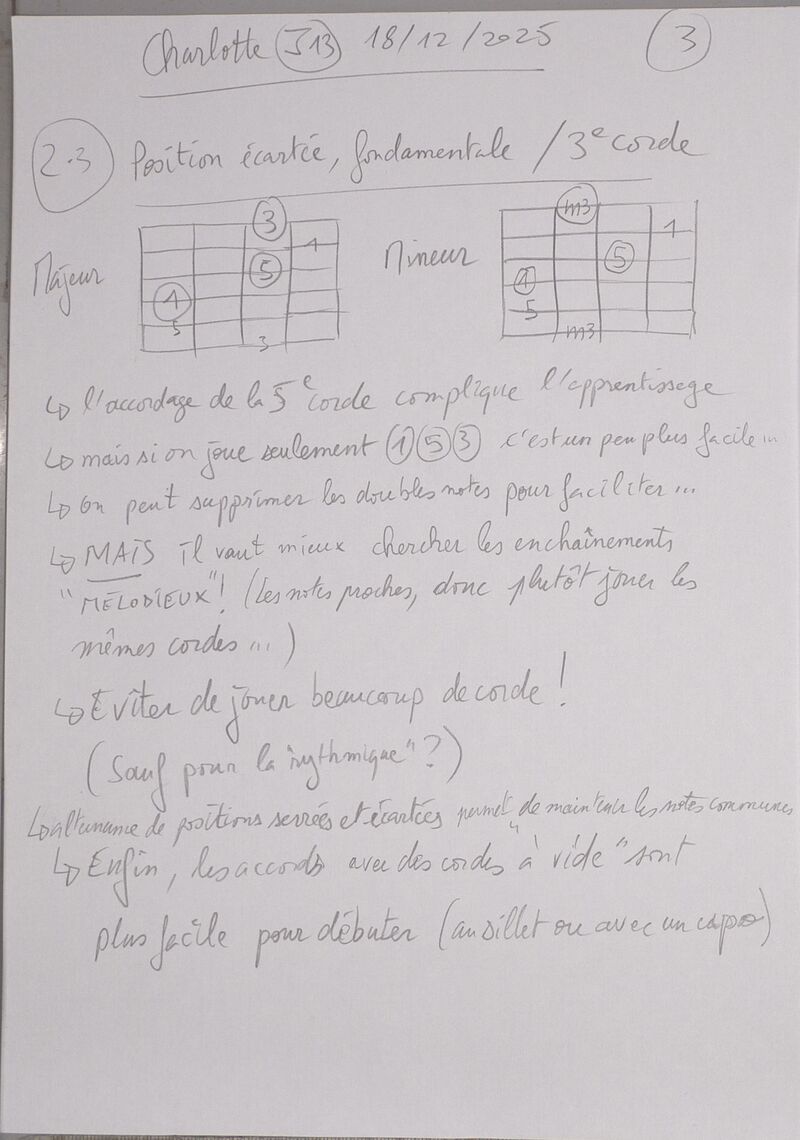 Charlotte J13 18/12/2025 3
2.3 Position écartée, fondamentale / 3e corde
Majeur 3 1 5 1 5 3
Mineur m3 1 5 1 5 m3
↳ l'accordage de la 5e corde complique l'apprentissage
↳ mais si on joue seulement 1 5 3 c'est un peu plus facile...
↳ on peut supprimer les doubles notes pour faciliter...
↳ MAIS il vaut mieux chercher les enchaînements
"MÉLODIEUX"! (les notes proches, donc plutôt jouer les
mêmes cordes...)
↳ Eviter de jouer beaucoup de corde!
(Sauf pour la "rythmique"?)
↳ alternance de positions serrées et écartées permet de maintenir les notes communes
↳ Enfin, les accords avec des cordes "à vide" sont
plus facile pour débuter (au sillet ou avec un capo)